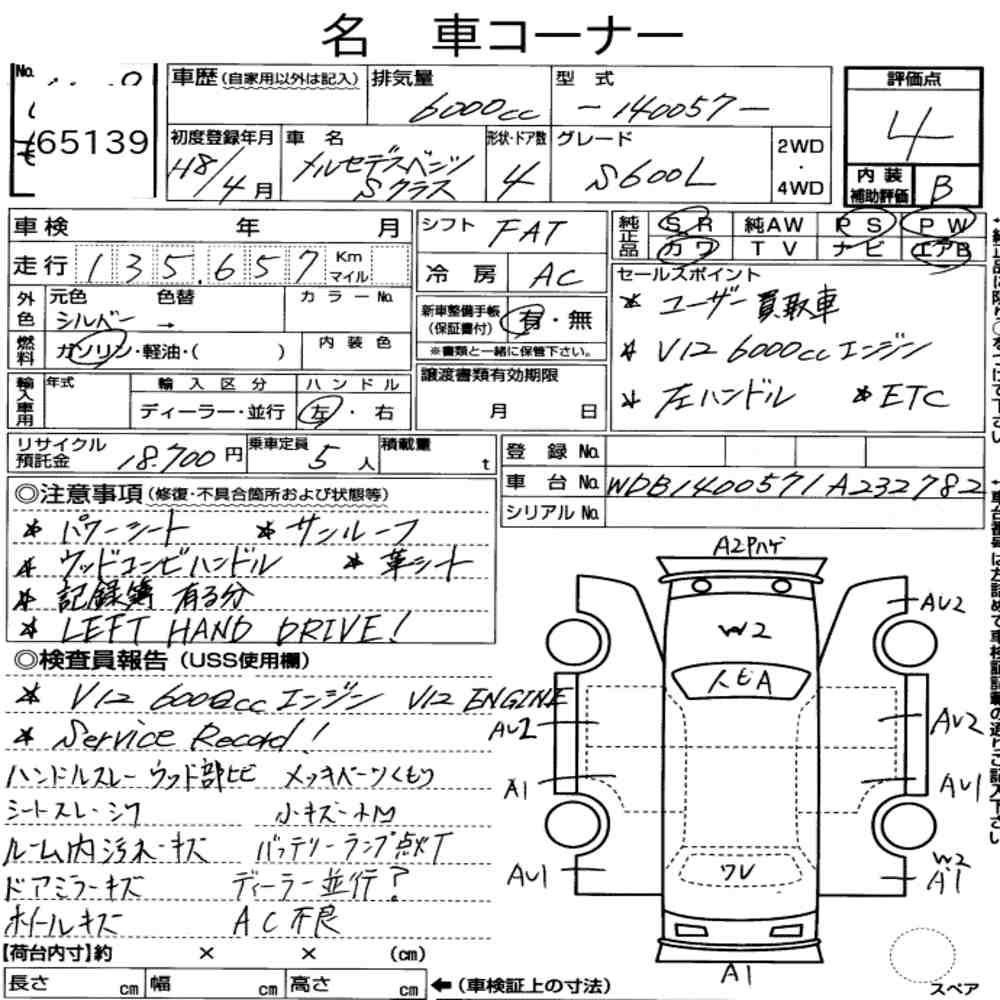 名 車コーナー
No.
65139
車歴(自家用以外は記入) 排気量 6000cc 型式 -140057-
初度登録年月 H8/4月 車名 メルセデスベンツ Sクラス 形状・ドア数 4 グレード S600L 2WD・4WD
評価点 4
内装補助評価 B
車検 年 月
走行 135,657 Km マイル
シフト FAT
冷房 AC
純正品 SR 純AW PS PW
カワ TV ナビ エアB
外色 元色 シルバー → 色替 カラーNo.
燃料 ガソリン・軽油・( ) 内装色
新車整備手帳(保証書付) 有・無
※書類と一緒に保管下さい。
セールスポイント
* ユーザー買取車
* V12 6000ccエンジン
* 左ハンドル * ETC
輸入車用 年式 輸入区分 ディーラー・並行 ハンドル 左・右
譲渡書類有効期限 月 日
リサイクル預託金 18,700円 乗車定員 5人 積載量 t
登録No.
車台No. WDB1400571A232782
シリアルNo.
◎注意事項(修復・不具合箇所および状態等)
* パワーシート * サンルーフ
* ウッドコンビハンドル * 革シート
* 記録簿 有る分
* LEFT HAND DRIVE!
◎検査員報告(USS使用欄)
* V12 6000ccエンジン V12 ENGINE
* Service Record!
ハンドルスレ ウッド部ヒビ メッキパーツくもり
シートスレ・シワ 小キズ・凹
ルーム内汚れ・キズ バッテリーランプ点灯
ドアミラーキズ ディーラー並行?
ホイールキズ AC不良
【荷台内寸】約 × × (cm)
長さ cm 幅 cm 高さ cm ←(車検証上の寸法)
A2Pハゲ
AU2
W2
AU2
AU2
A1
AU1
AU1
W2
A1
ワレ
A1
スペア